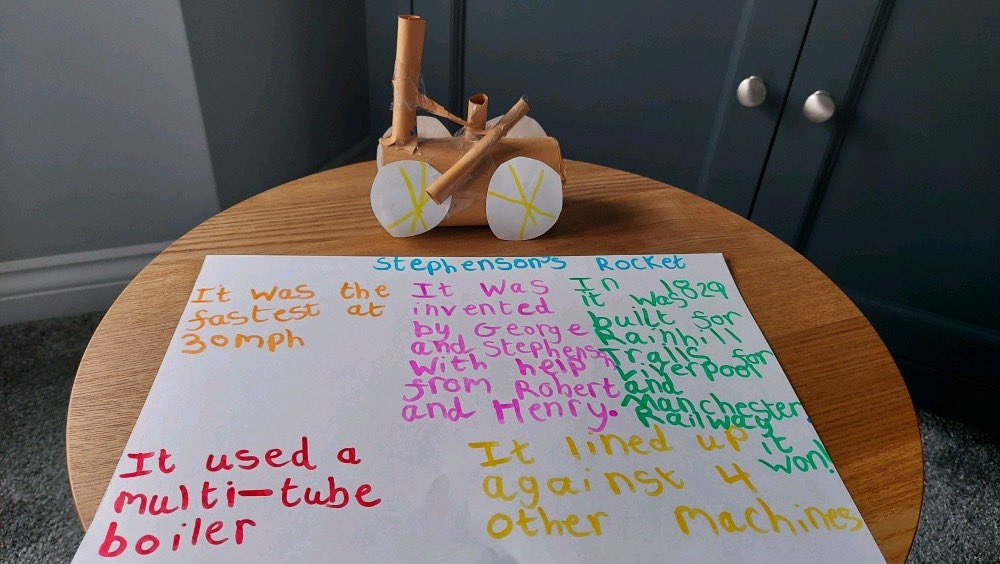 Stephenson's Rocket
It was the
fastest at
30mph
It was
invented
by George
and Stephenson
with help
from Robert
and Henry.
In 1829
it was
built for
Rainhill
Trails for
Liverpool
and
Manchester
Railway
it
won!
It used a
multi-tube
boiler
It lined up
against 4
other machines